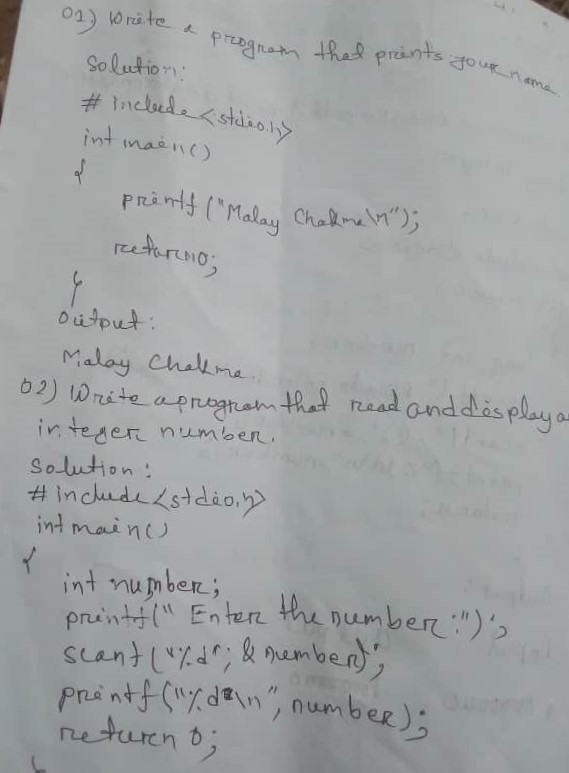 01) Write a program that prints your name
Solution:
# include <stdio.h>
int main()
{
printf ("Malay Chakma\n");
return 0;
}
output:
Malay Chakma.
02) Write a program that read and display a
integer number.
Solution:
# include <stdio.h>
int main()
{
int number;
printf(" Enter the number :");
scanf ("%d"; & number);
printf ("%d\n", number);
return 0;
}